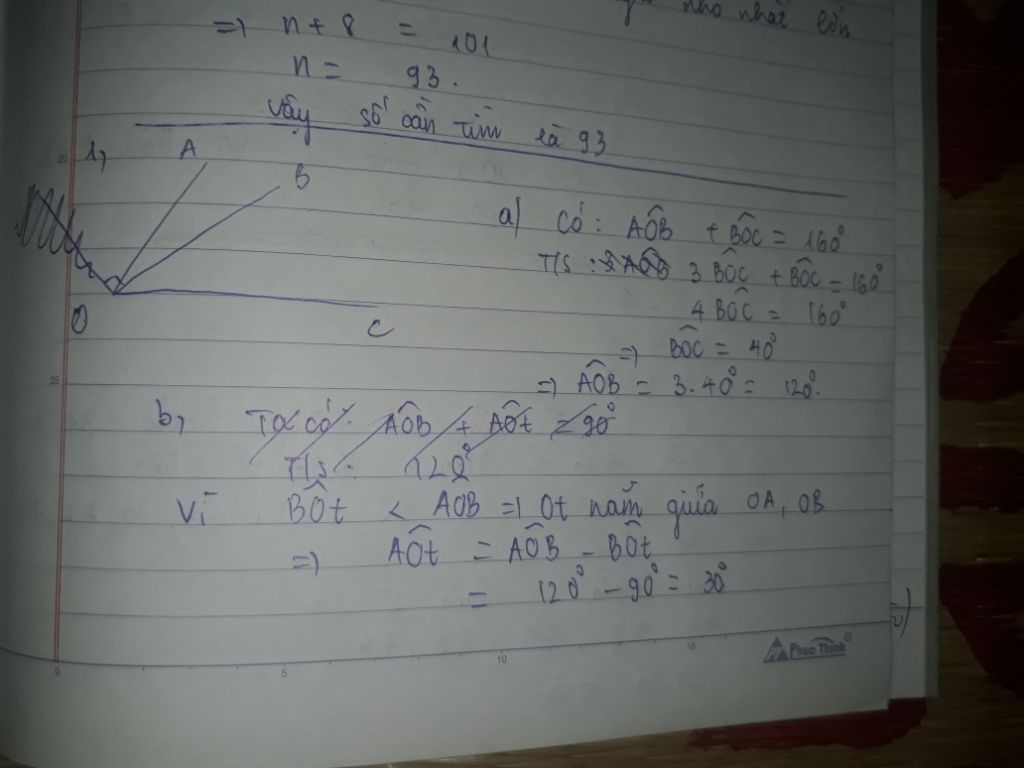 nhỏ nhất lớn
=> n + 8 = 101
n = 93.
Vậy số cần tìm là 93
1,
A
B
O
C
a) Có: AÔB + BÔC = 160°
T/S: 3 AÔB 3 BÔC + BÔC = 160°
4 BÔC = 160°
=> BÔC = 40°
=> AÔB = 3.40° = 120°.
b, Ta có: AÔB + AÔt = 90°
T/S: 120°
Vì BÔt < AOB => Ot nằm giữa OA, OB
=> AÔt = AÔB - BÔt
= 120° - 90° = 30°
20
25
0 5 10 15
Phuc Thinh